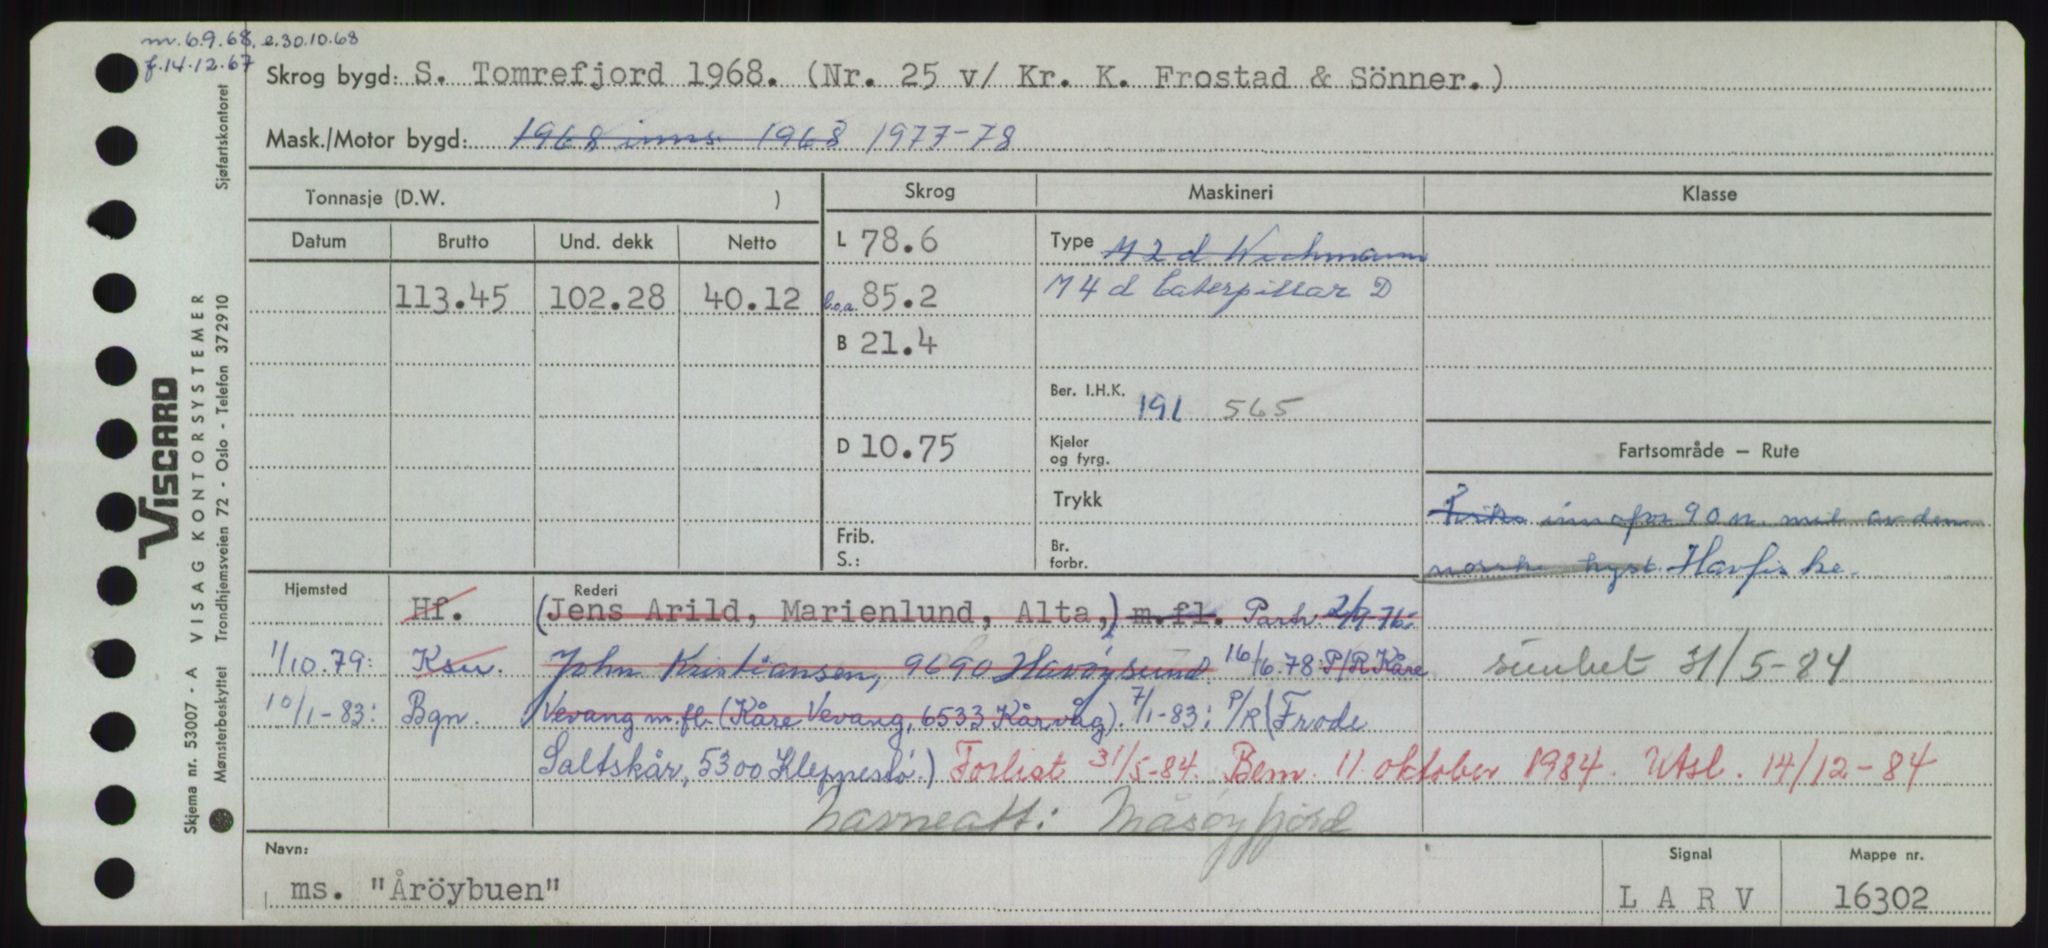 m. 6.9.68, e. 30.10.68
f. 14.12.67
Skrog bygd: S. Tomrefjord 1968. (Nr. 25 v/ Kr. K. Frostad & Sönner.)
Mask./Motor bygd: 1968 inns. 1968 1977-78
Tonnasje (D.W. )
Skrog
Maskineri
Klasse
Datum Brutto Und. dekk Netto
L 78.6
Type M 2 d Wichmann
113.45 102.28 40.12
l.o.a. 85.2
M 4 d Caterpillar D
B 21.4
Ber. I.H.K. 191 565
D 10.75
Kjeler
og fyrg.
Fartsområde – Rute
Trykk
Frib.
S.:
Br.
forbr.
innafor 90 n. mil av den
norske kyst. Havfiske.
Hjemsted
Rederi
Hf. (Jens Arild, Marienlund, Alta,) m.fl. Partr. 2/9-76:
1/10.79: Ksu. John Kristiansen, 9690 Havöysund. 16/6.78: P/R Kåre
sunket 31/5-84
10/1-83: Bgn. Vevang m.fl. (Kåre Vevang, 6533 Kårvåg). 7/1-83: P/R (Frode
Saltskår, 5300 Kleppestö.) Forlist 31/5-84. Bem. 11. oktober 1984. Utsl. 14/12-84
Navneatt: Måsöyfjord
Navn:
ms. "Åröybuen"
Signal
L A R V
Mappe nr.
16302
VISCARD
VISAG KONTORSYSTEMER
Skjema nr. 53007 - A
Mønsterbeskyttet Trondhjemsveien 72 - Oslo - Telefon 372910
Sjøfartskontoret